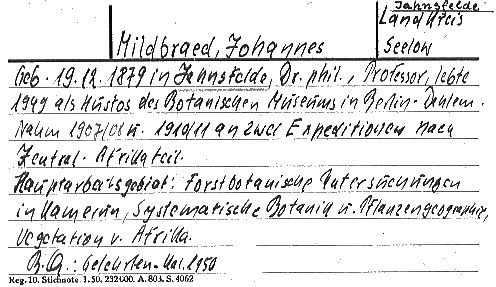 Jahnsfelde
Landkreis
Mildbraed, Johannes
Seelow
Geb. 19.12.1879 in Jahnsfelde, Dr. phil., Professor, lebte
1949 als Kustos des Botanischen Museums in Berlin-Dahlem.
Nahm 1907/08 u. 1910/11 an zwei Expeditionen nach
Zentral-Afrika teil.
Hauptarbeitsgebiet: Forstbotanische Untersuchungen
in Kamerun, Systematische Botanik u. Pflanzengeographie,
Vegetation v. Afrika.
B.Q.: Gelehrten-Kal. 1950
Reg. 10. Stichnote. 1. 50. 232000. A. 803. S. 4062